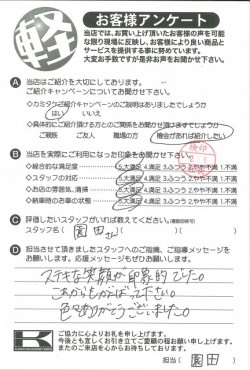 軽
お客様アンケート
当店では、お買い上げ頂いたお客様の声を可能
な限り現場に反映し、お客様により良い商品と
サービスを提供する事に努めています。
大変お手数ですが是非お声をお聞かせ下さい。
A 当店はご紹介を大切にしております。
ご紹介キャンペーンについてお聞かせ下さい
◇カミタケご紹介キャンペーンのご説明はありましたでしょうか
はい いいえ
◇具体的にご紹介頂ける方とのご関係をお聞かせ頂けますでしょうか
ご親族 ご友人 職場の方 機会があれば紹介したい
B 当店を実際にご利用になった印象をお聞かせ下さい
◇総合的な満足度 5.大満足 4.満足 3.ふつう 2.やや不満 1.不満
◇スタッフの対応 5.大満足 4.満足 3.ふつう 2.やや不満 1.不満
◇お店の雰囲気、清掃 5.大満足 4.満足 3.ふつう 2.やや不満 1.不満
◇納車時のお車の状態 5.大満足 4.満足 3.ふつう 2.やや不満 1.不満
C 評価したいスタッフがいれば教えてください。(複数回答可)
スタッフ名( 園田さん )( )
D 担当させて頂きましたスタッフへのご指摘、ご指導メッセージを
お願いします。応援メッセージもぜひお願いします。
ステキな笑顔が印象的でした。
これからもがんばってください。
色々ありがとうございました。
K
ご協力に心よりお礼を申し上げます。
今後とも宜しくお引き立てご愛顧の程お願い申し上げます。
またのご来店を心よりお待ちしております。
担当( 園田 )